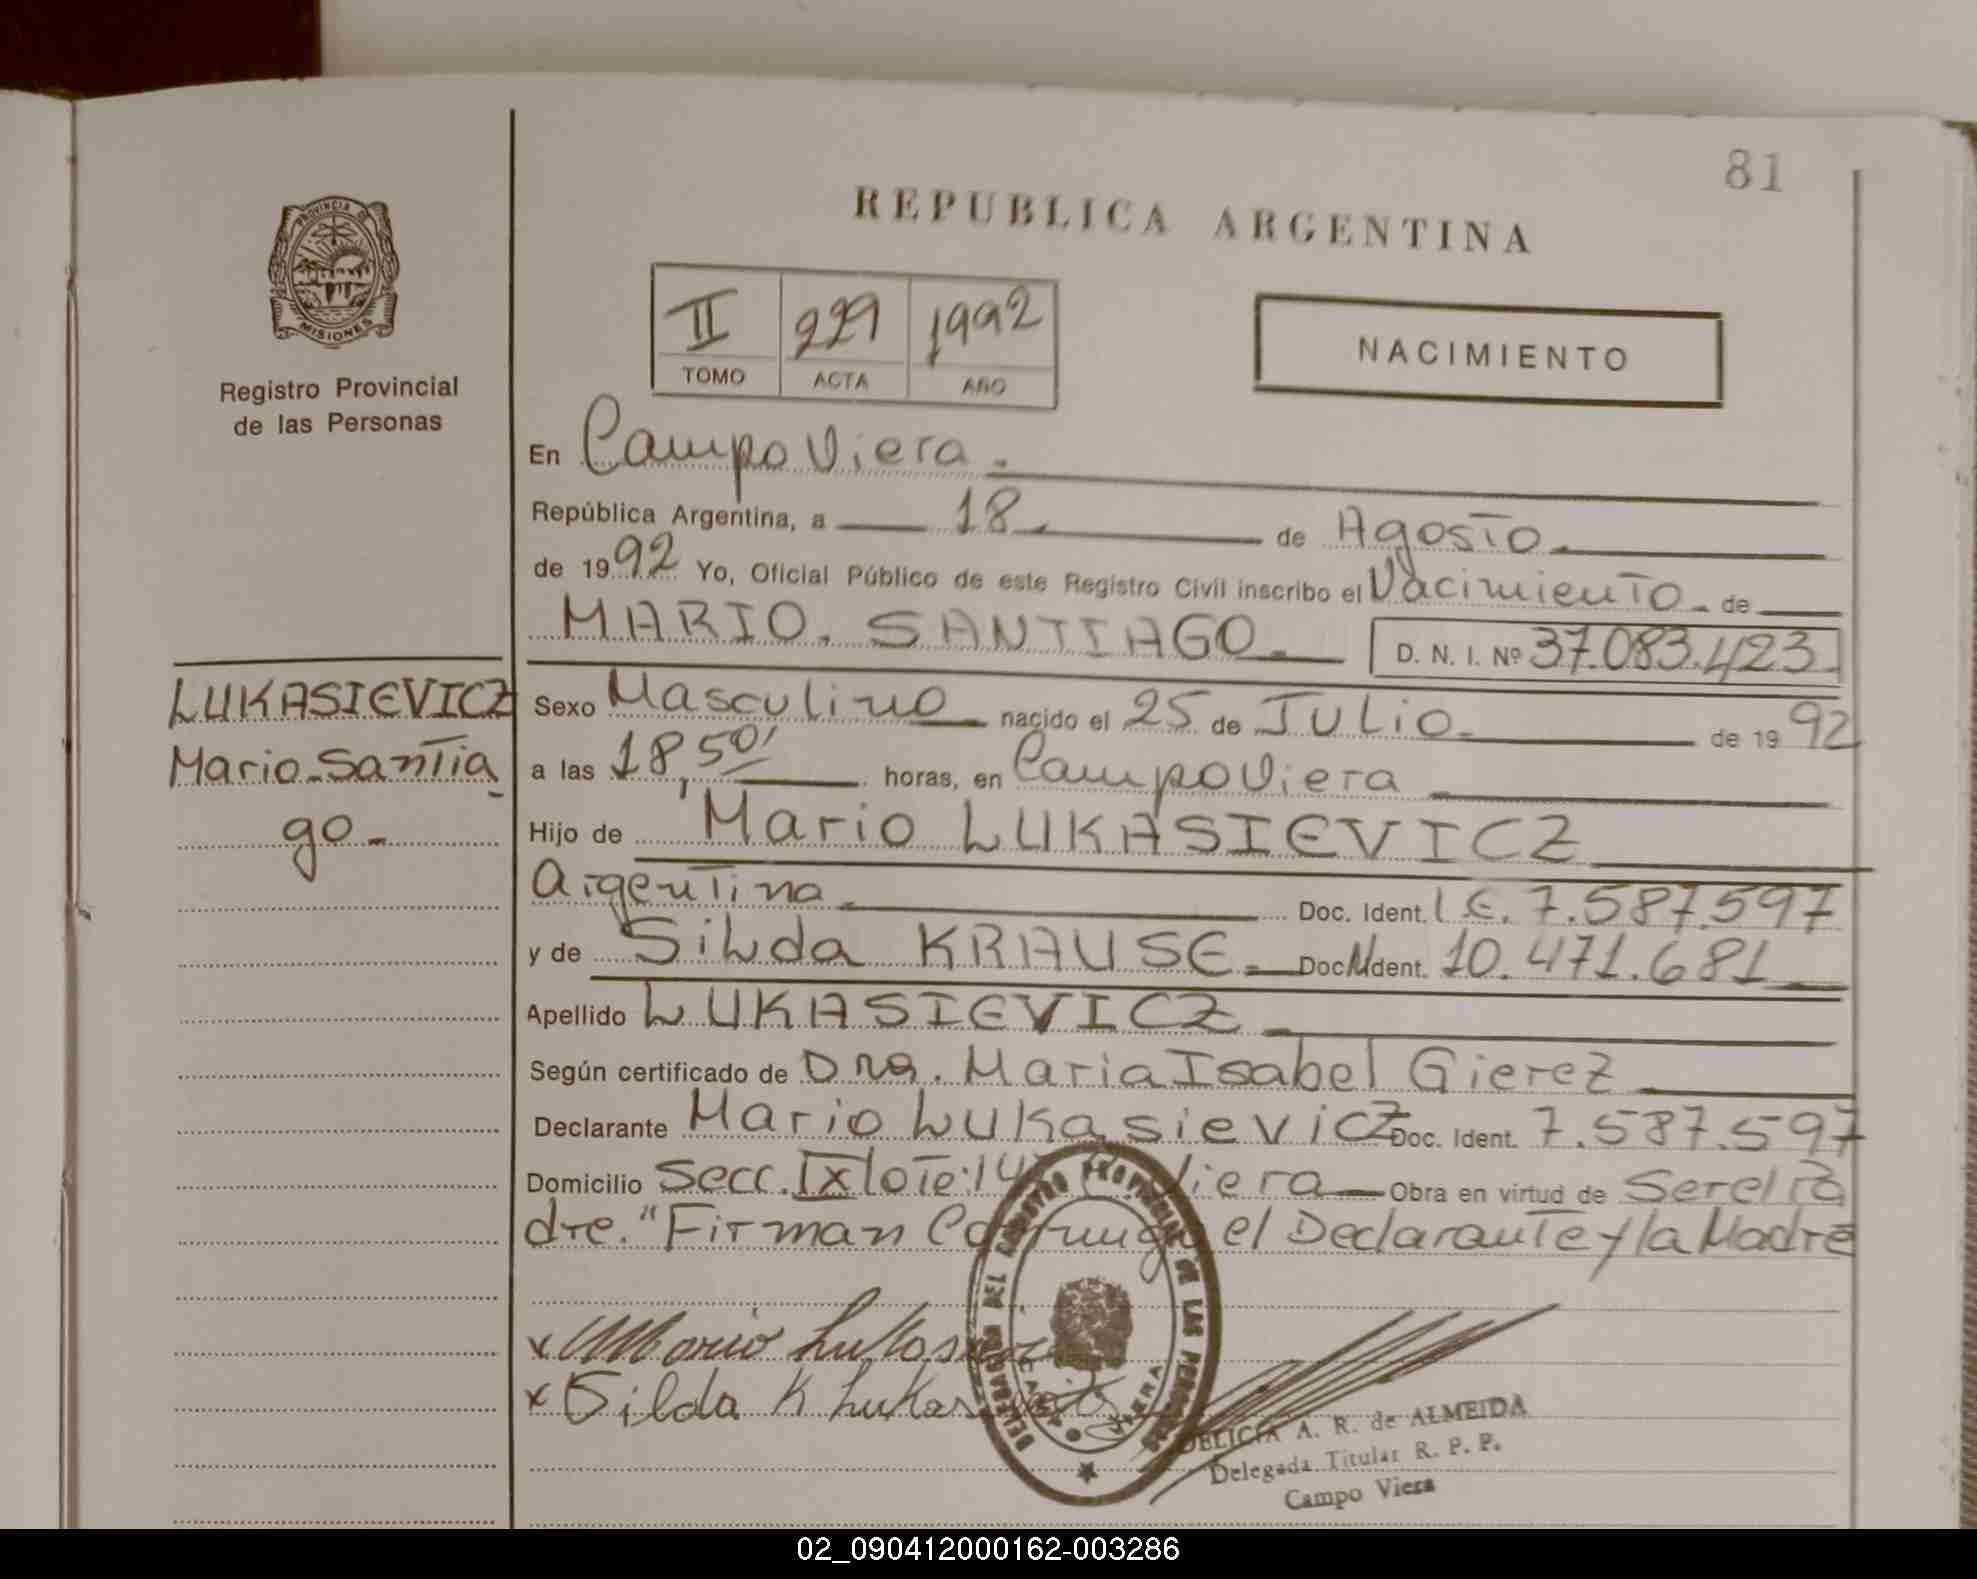 81
REPUBLICA ARGENTINA
PROVINCIA DE
MISIONES
Registro Provincial
de las Personas
II 229 1992
TOMO ACTA AÑO
NACIMIENTO
En Campo Viera.
República Argentina, a 18 de Agosto
de 1992 Yo, Oficial Público de este Registro Civil inscribo el Nacimiento de
MARIO. SANTIAGO D. N. I. Nº 37.083.423
LUKASIEVICZ
Mario Santia
go
Sexo Masculino nacido el 25 de JULio de 19 92
a las 18,50' horas, en Campo Viera
Hijo de Mario LUKASIEVICZ
Argentina Doc. Ident. L E. 7.587.597
y de SiLda KRAUSE. Doc. Ident. 10.471.681
Apellido LUKASIEVICZ
Según certificado de Dra. Maria Isabel Gierez
Declarante Mario Lukasievicz Doc. Ident. 7.587.597
Domicilio Secc. IX lote: 14 Viera Obra en virtud de Ser el Pa
dre. "Firman el Declarante y la Madre
x Mario
x Silda K
DEL REGISTRO PROVINCIAL DE LAS PERSONAS
VIERA
DELICIA A. R. de ALMEIDA
Delegada Titular R. P. P.
Campo Viera
02_090412000162-003286